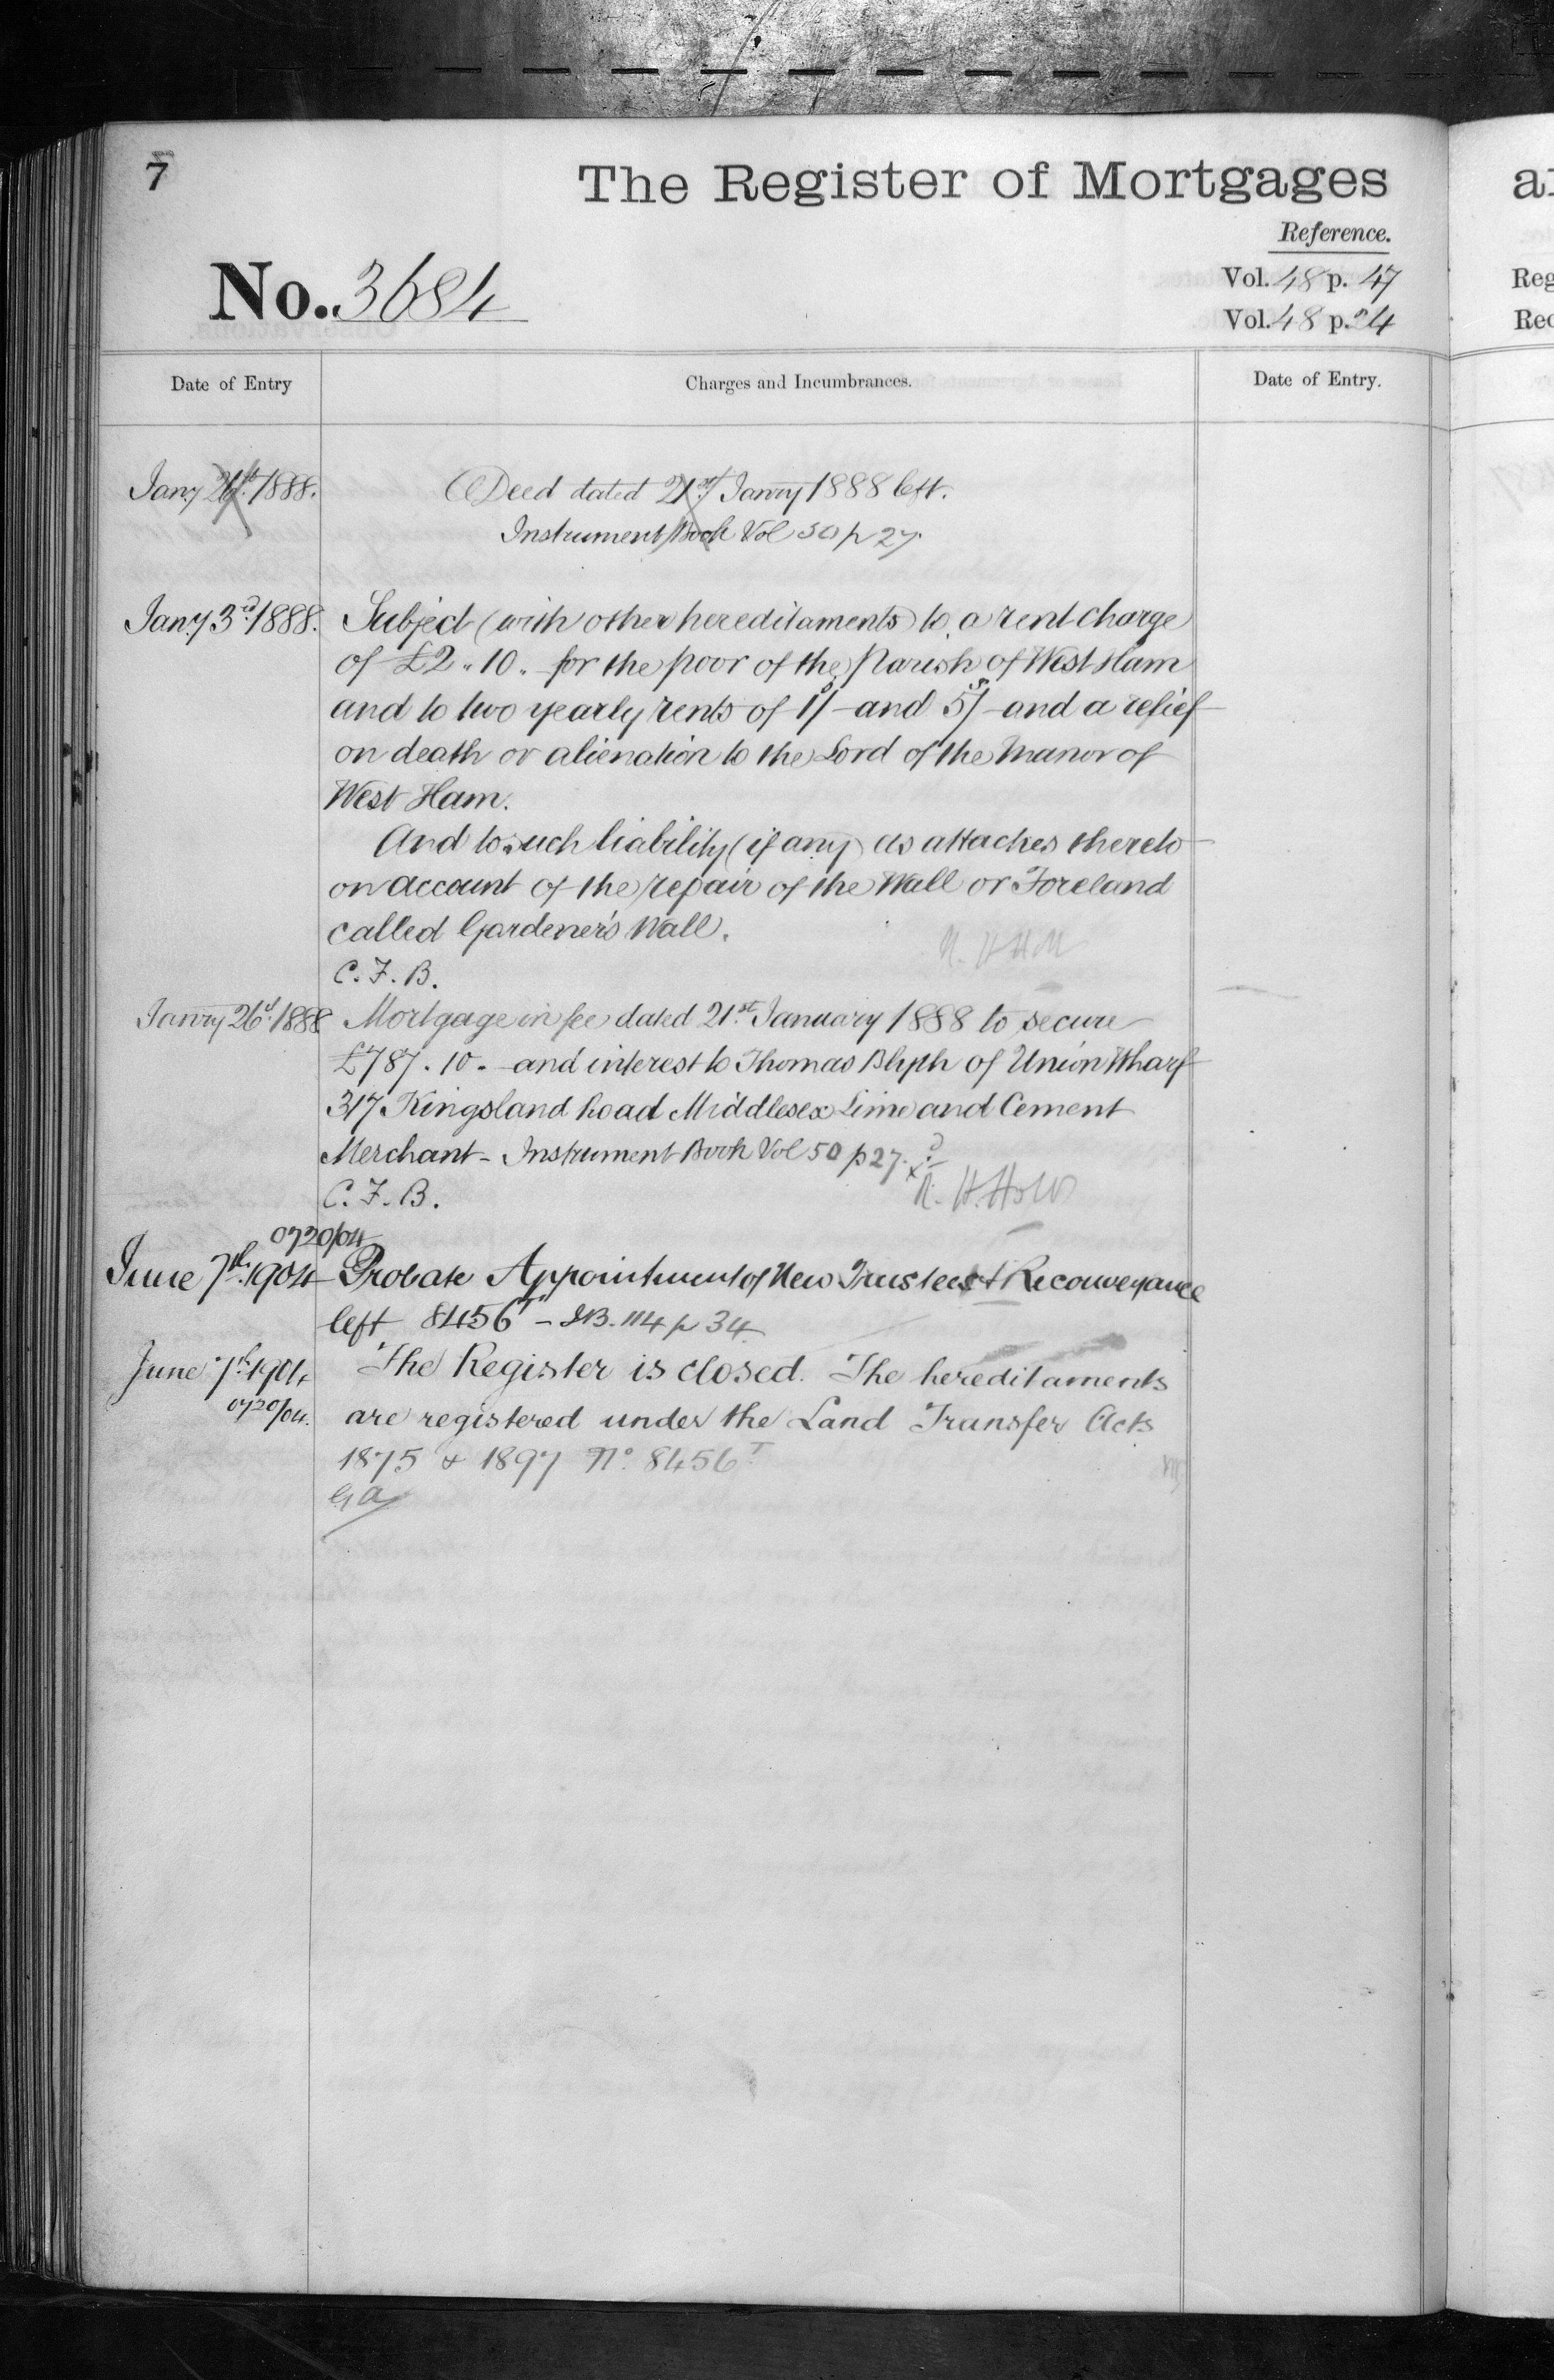 7
The Register of Mortgages
Reference.
No. 3684
Vol. 48 p. 47
Vol. 48 p. 24
Date of Entry
Charges and Incumbrances.
Date of Entry.
Jany 1888. Deed dated 21st Janry 1888 left.
Instrument Book Vol 50 p 27.
Jany 3rd 1888. Subject (with other hereditaments) to a rent charge
of £2 " 10 " for the poor of the Parish of West Ham
and to two yearly rents of 1s/- and 5s/- and a relief
on death or alienation to the Lord of the Manor of
West Ham.
And to such liability (if any) as attaches thereto
on account of the repair of the Wall or Foreland
called Gardener's Wall.
C. F. B.
Janry 26 1888 Mortgage in fee dated 21st January 1888 to secure
£787 . 10 . - and interest to Thomas Blyth of Union Wharf
317 Kingsland Road Middlesex Lime and Cement
Merchant - Instrument Book Vol 50 p 27.
C. F. B.
0720/04
June 7th 1904 Probate Appointment of New Trustees & Reconveyance
left 8456T - IB. 114 p 34
June 7th 1904 The Register is closed. The hereditaments
0720/04. are registered under the Land Transfer Acts
1875 & 1897 No. 8456T
Reg
Rec